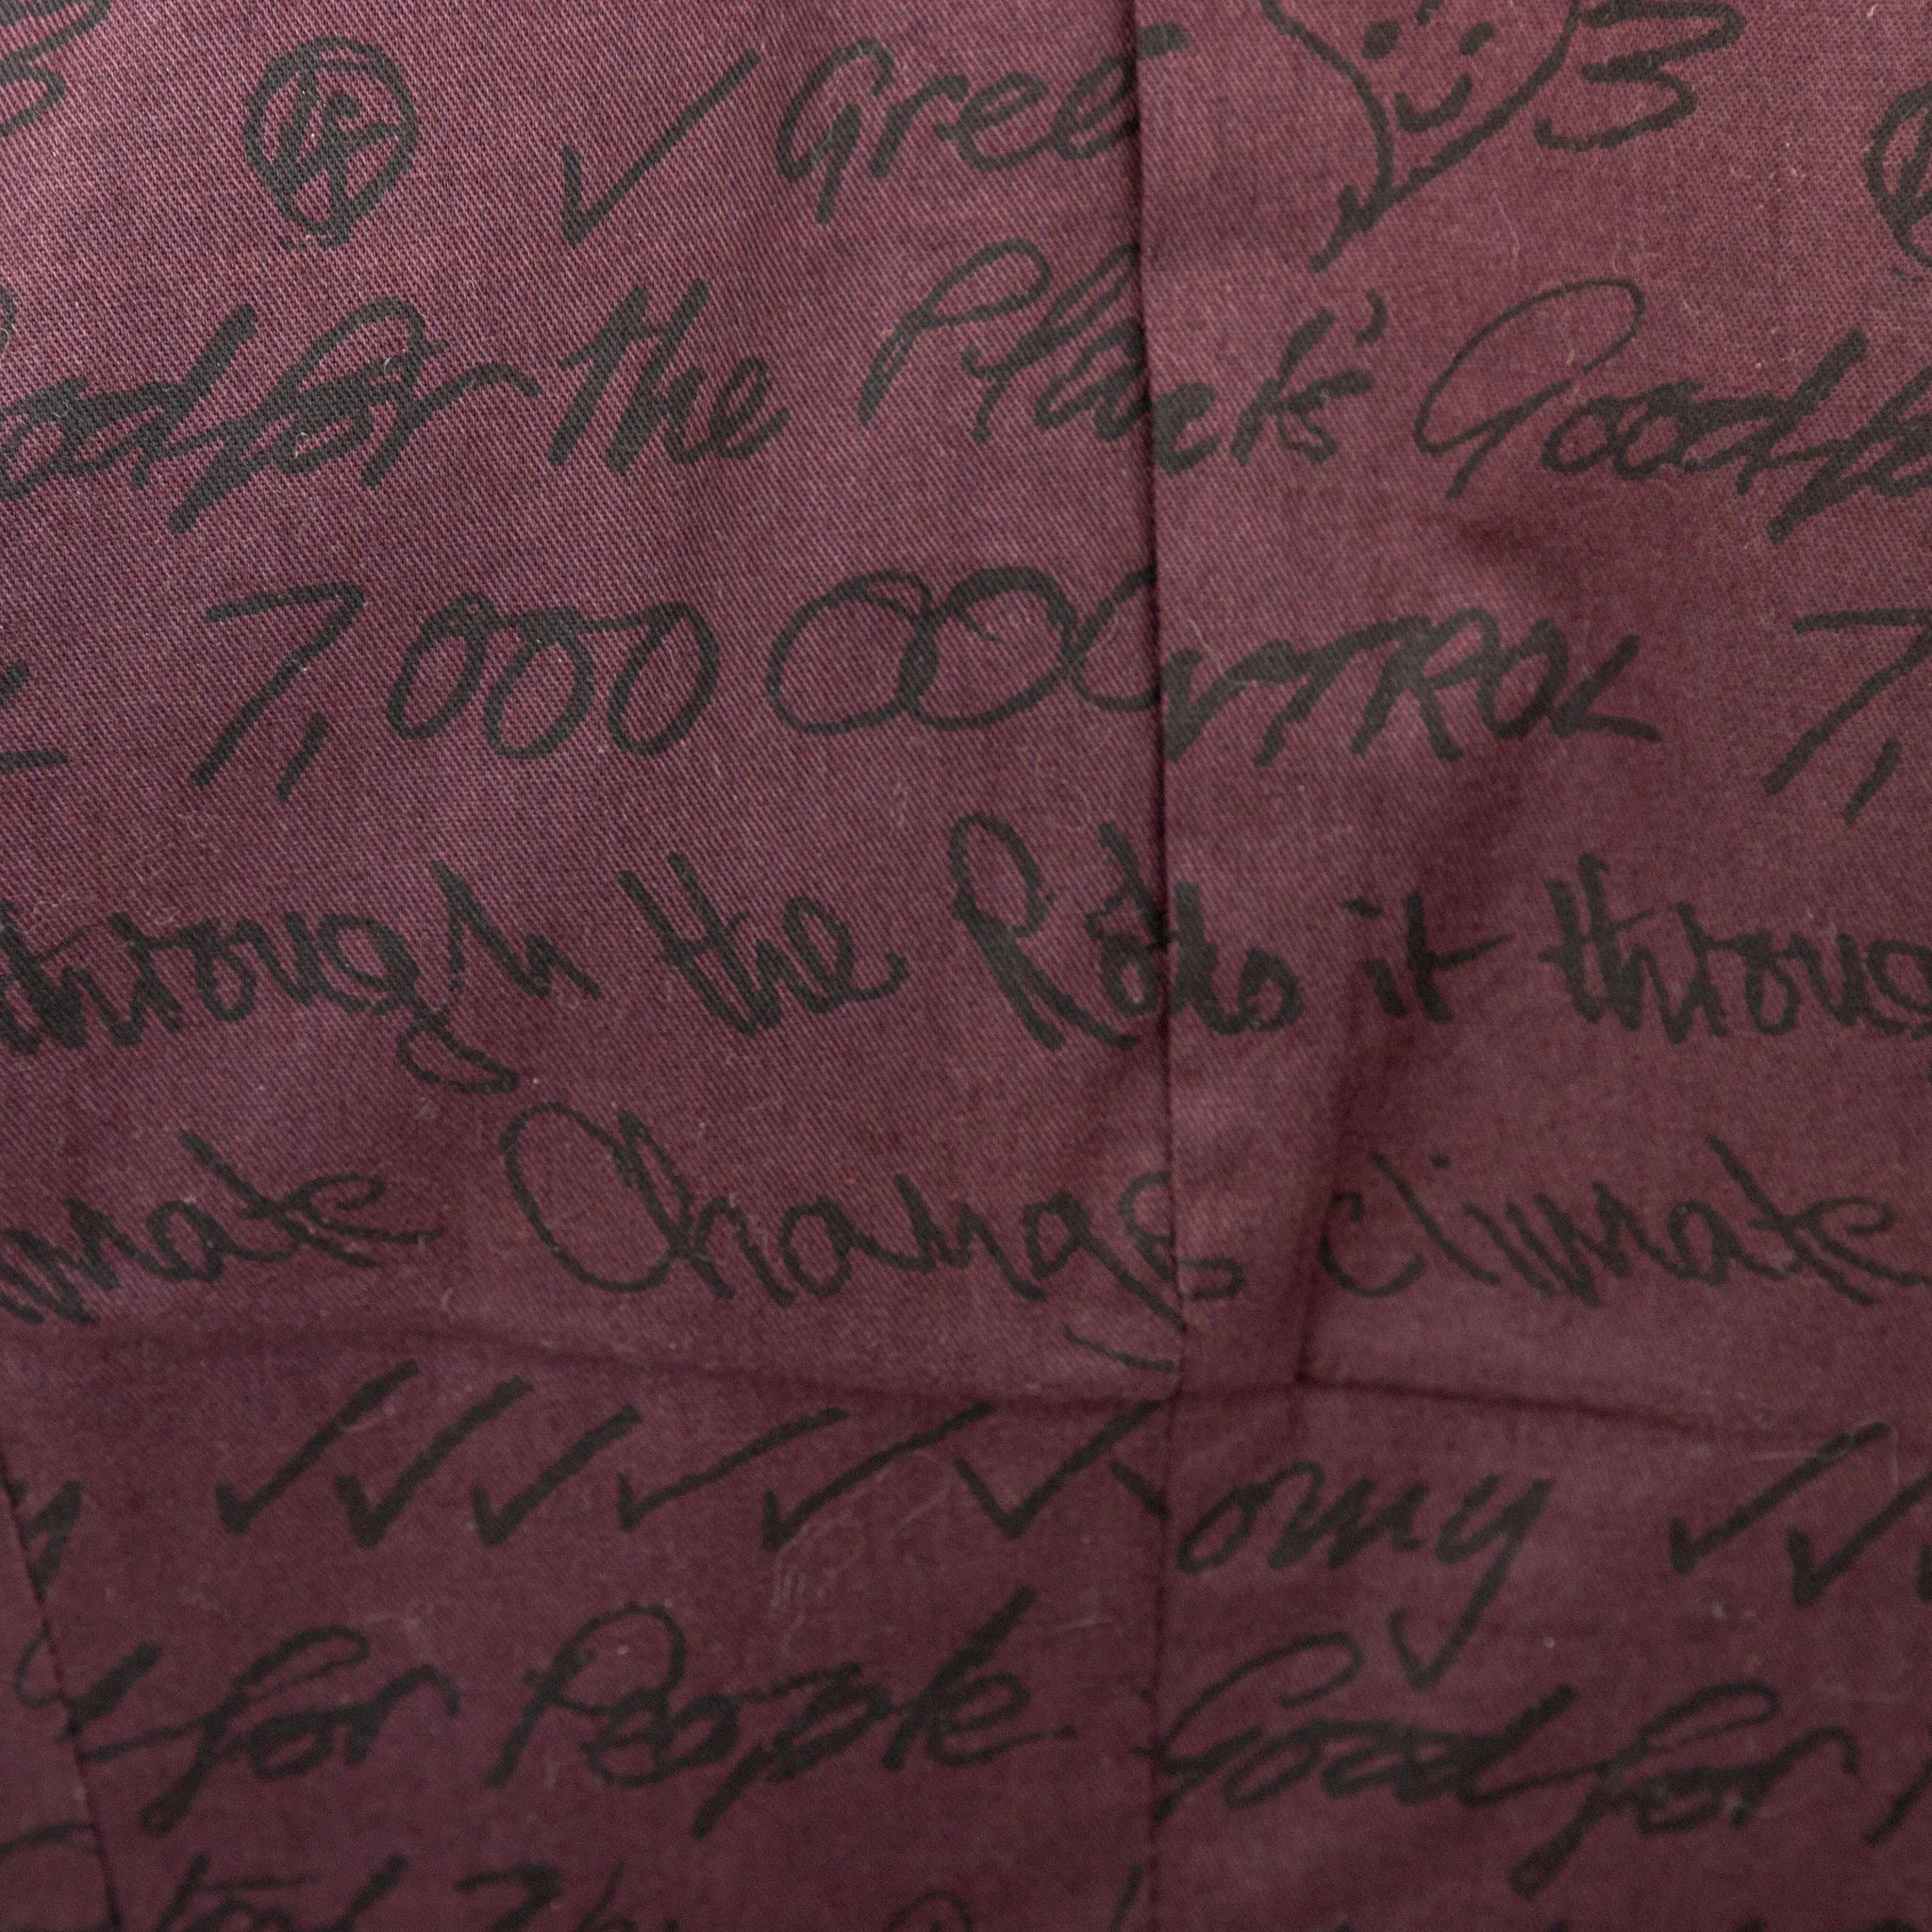 ✓ Gree
Good for the Planets' Good fo
7,000 000 CONTROL 7,
through the it throug
mate Change climate
✓✓✓✓✓✓✓ omy ✓✓
for People Good for